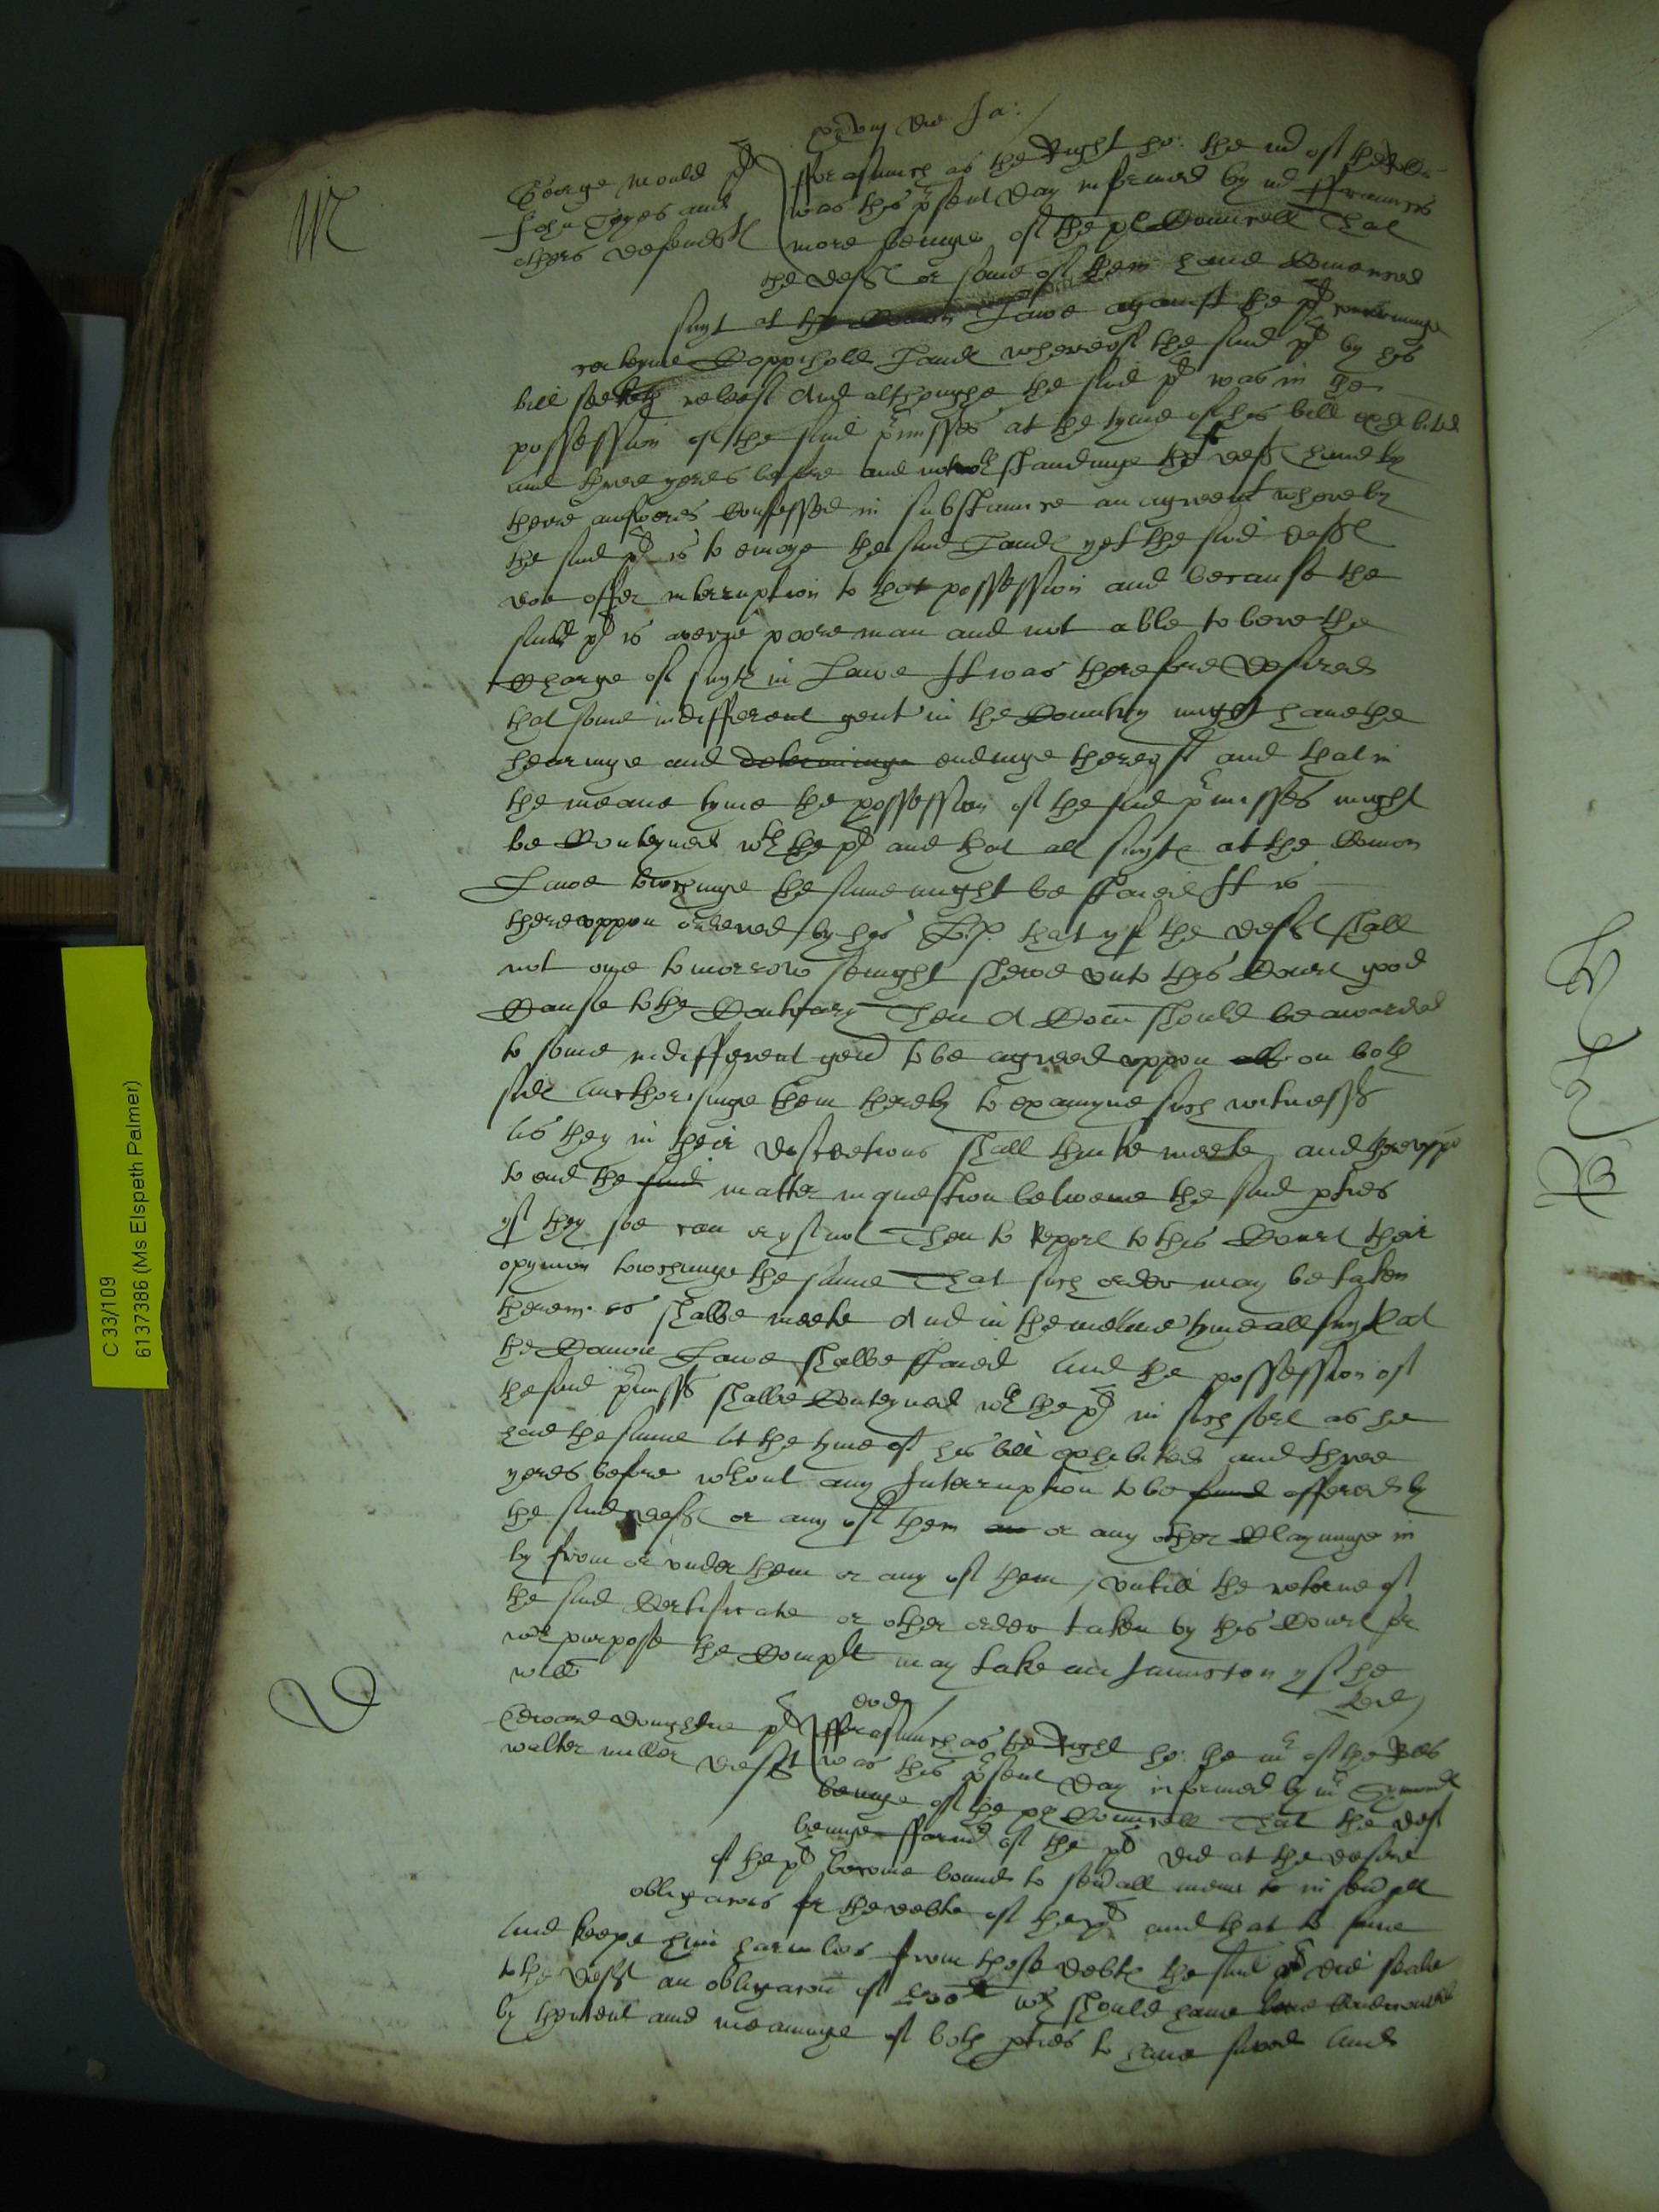 die Ja:
M
George mould pl
John Toyes and
others defendtℓ
fforasmuch as the Right ho: the mr of the Rolles
was this pˀsent day informed by mr ffrauncis
more beinge of the plˀ Councell That
the defℓ or some of them haue Comenced
suyt at the Comon Lawe against the pl concerninge
certeyne Coppiholle Landℓ whereof the said pl by his
bill seeketh releef And althoughe the said pl was in the
possession of the said pˀmisses at the tyme of his bill exhibited
and three yeres before and notwthstandinge the defℓ haue by
there answeres Confessed in substaunce an agreemt whereby
the said pl is to enioye the said Landℓ yet the said defℓ
doe offer interruption to that possession and because the
said pl is a verie poore man and not able to bere the
Charge of suytℓ in Lawe It was therefore desired
that some indifferent gent in the Countrey might haue the
hearinge and determininge endinge thereof and that in
the meane tyme the possession of the said pˀmisses might
be Conteyned wth the pl and that all suytℓ at the Comon
Lawe towchinge the same might be staied It is
thereuppon ordered by his Lp. that yf the defℓ shall
not one to morrow senight shewe vnto this Court good
Cause to the Contrary Then A Com should be awarded
to some indifferent gent to be agreed vppon all on both
sidℓ Aucthorisinge them thereby to examyne such witnessℓ
As they in their discretions shall thinke meete and therevppō
to end the said matter in question betweene the said pties
yf they soe can or yf not Then to Report to this Court their
opynion towchinge the same That such order may be taken
therein as shalbe meete And in the meane tyme all suytℓ at
the Comon Lawe shalbe staied And the possession of
the said pˀmissℓ shalbe Conteyned wth the pl in such sort as he
had the same At the tyme of his bill exhibited and three
yeres before wthout any Interruption to be said offered by
the said defℓ or any of them an or any other Clayminge in
by from or vnder them or any of them, vntill the retorne of
the said Certificate or other order taken by this Court for
wch purpose the Complt may take an Iniunccion yf he
will
D
eod
Edward Doughtie pl
walter miller deft
fforasmuch as the Right ho: the mr of the Rolles
was this pˀsent day informed by mr Symondℓ
beinge of the pl Councell That the deft
beinge ffarmer of the pl did at the desire
of the pl become bound to seuall mene to in seuall
obligacons for the debte of the pl and that to saue
And keepe him harmles from those debtℓ the said pl did seale
to the deft an obligacon of wch should haue bene
by thentent and meaninge of both pties to haue saued And
C 33/109
6137386 (Ms Elspeth Palmer)